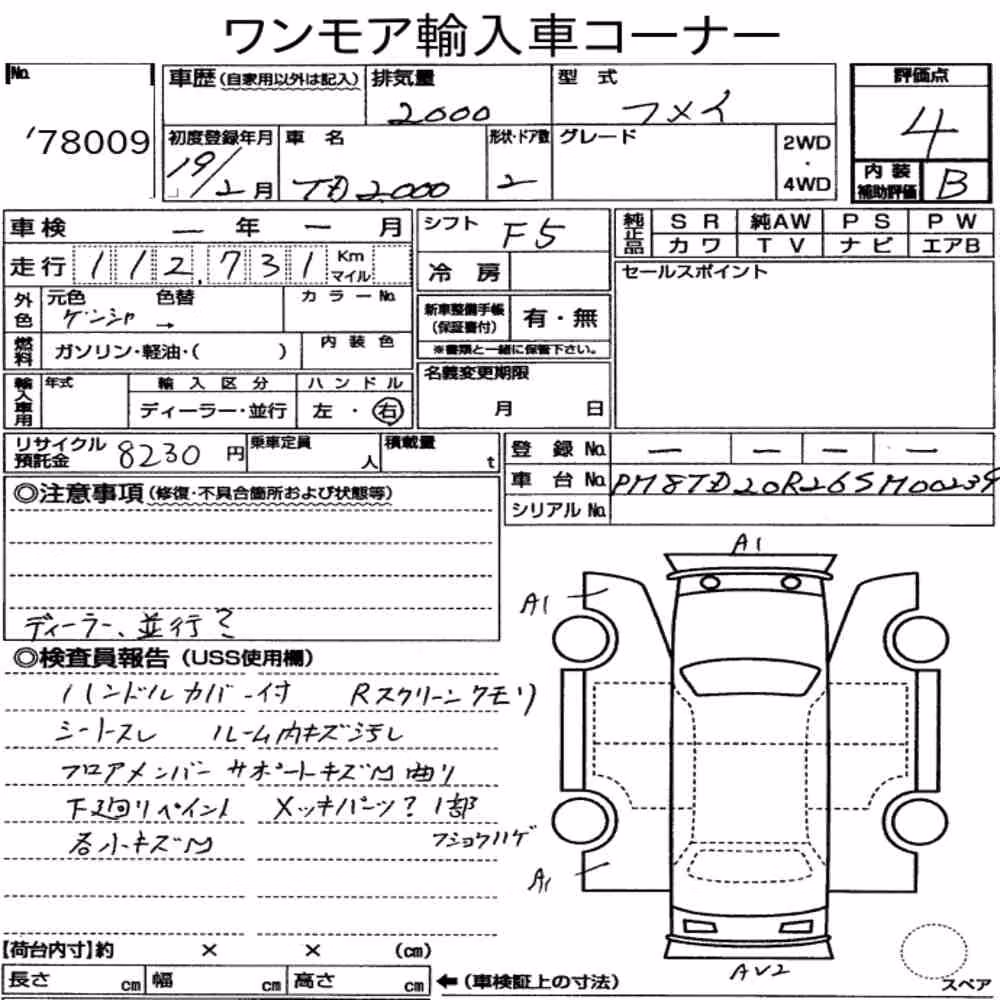 ワンモア輸入車コーナー
No.
'78009
車歴(自家用以外は記入)
排気量
2000
型 式
フメイ
評価点
4
初度登録年月
19/2月
車 名
TD2000
形状・ドア数
2
グレード
2WD
・
4WD
内 装
補助評価
B
車検 ー 年 ー 月
シフト F5
純正品
SR 純AW PS PW
カワ TV ナビ エアB
走行 112,731 Km マイル
冷 房
セールスポイント
外色
元色 色替 カラーNo.
ゲンシャ →
新車整備手帳
(保証書付)
有・無
※書類と一緒に保管下さい。
燃料
ガソリン・軽油・( )
内 装 色
輸入車用
年式
輸 入 区 分
ディーラー・並行
ハ ン ド ル
左 ・ 右
名義変更期限
月 日
リサイクル
預託金
8230 円
乗車定員
人
積載量
t
登 録 No. ー ー ー ー
車 台 No. PM8TD20R26SM00239
シリアル No.
◎注意事項(修復・不具合箇所および状態等)
ディーラー、並行?
◎検査員報告(USS使用欄)
ハンドルカバー付 Rスクリーンクモリ
シートスレ ルーム内キズ汚レ
フロアメンバー サポートキズM曲リ
下廻リペイント メッキパーツ? 1部
各小キズM フショクハゲ
A1
A1
A1
AV2
【荷台内寸】約 × × (cm)
長さ cm 幅 cm 高さ cm ←(車検証上の寸法)
スペア